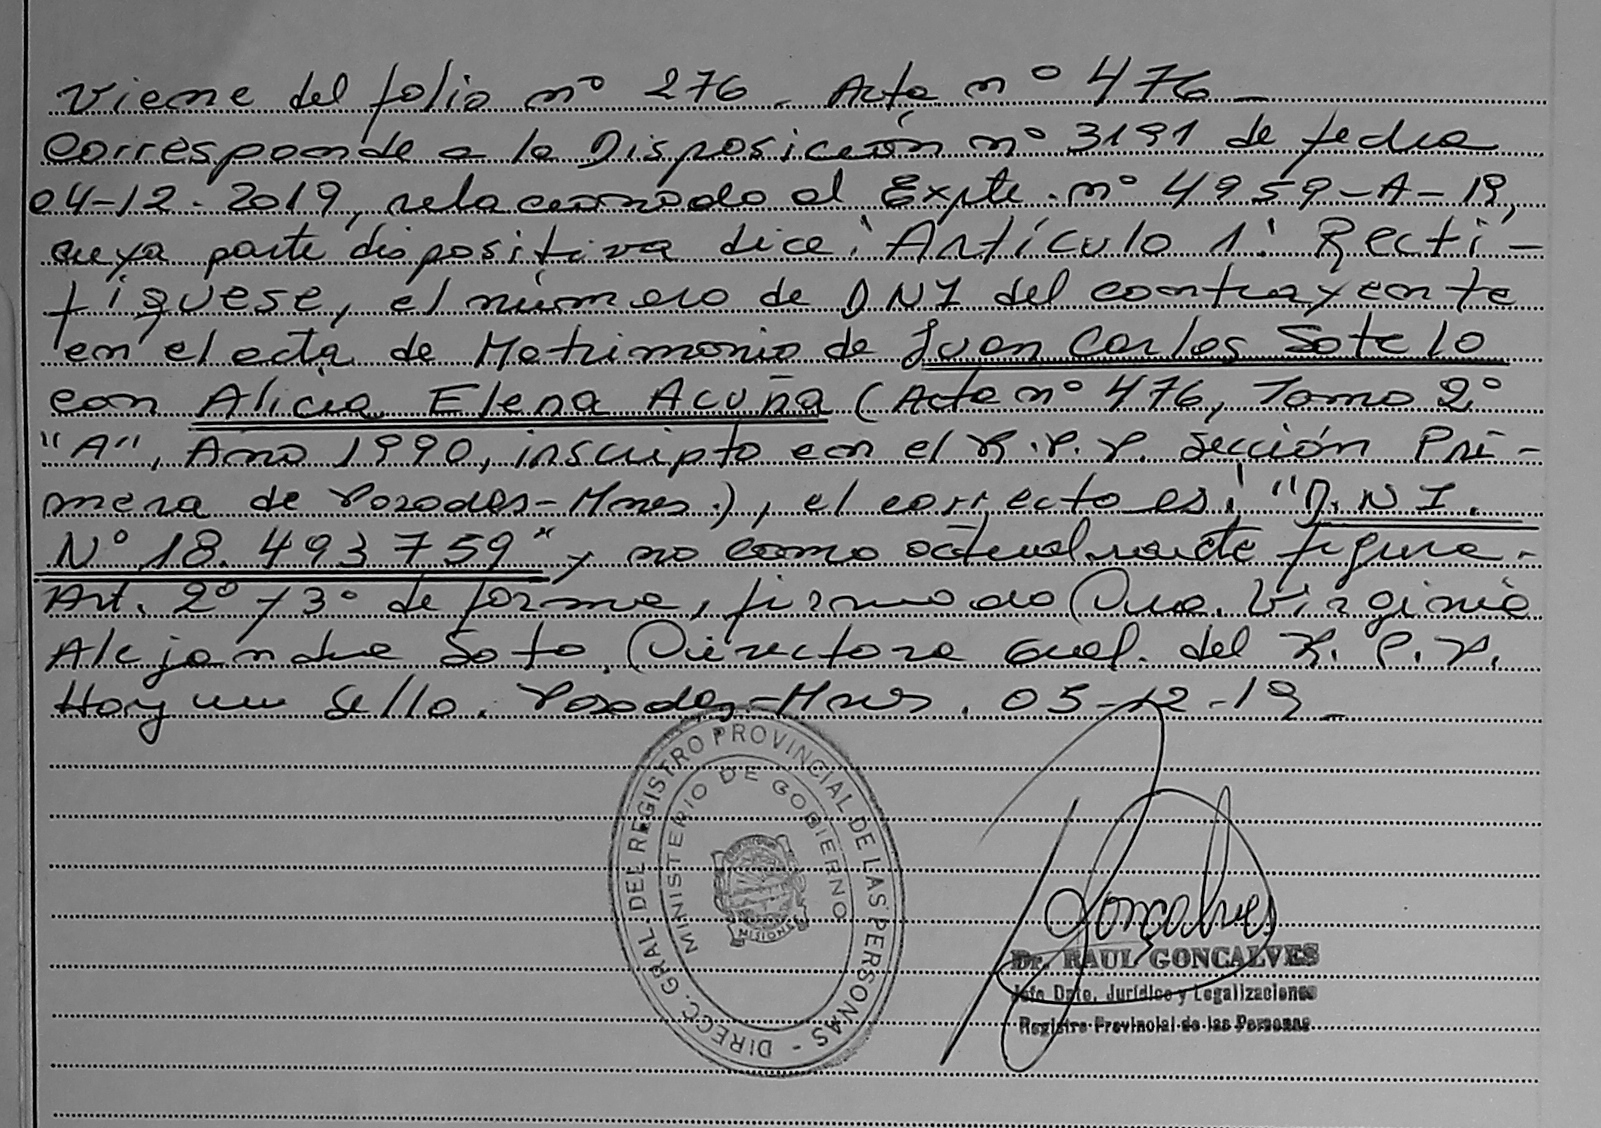 Viene del folio nº 276. Acta nº 476_
Corresponde a la Disposición nº 3191 de fecha
04-12-2019, relacionado al Expte. nº 4959-A-19,
cuya parte dispositiva dice: Artículo 1: Recti-
fíquese, el número de DNI del contrayente
en el acta de Matrimonio de Juan Carlos Sotelo
con Alicia Elena Acuña (Acta nº 476, Tomo 2º
"A", Año 1990, inscripto en el R.P.P. Sección Pri-
mera de Posadas-Mnes.), el correcto es: "D.N.I.
Nº 18.493759" y no como actualmente figura.
Art. 2º y 3º de forma, firmado Dra. Virginia
Alejandra Soto. Directora Gral. del R.P.P.
Hay un sello. Posadas-Mnes. 05-12-19_
DIRECC. GRAL. DEL REGISTRO PROVINCIAL DE LAS PERSONAS -
MINISTERIO DE GOBIERNO
MISIONES
Gonçalves
Dr. RAUL GONCALVES
Jefe Dpto. Jurídico y Legalizaciones
Registro Provincial de las Personas